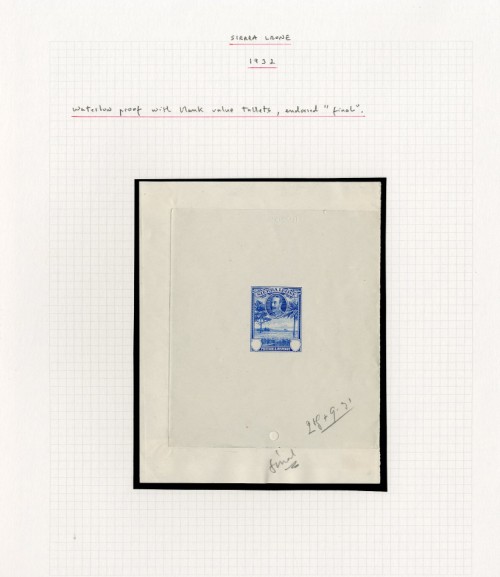 SIERRA LEONE
1932
Waterlow proof with blank value tablets, endorsed "final".
SIERRA LEONE
POSTAGE & REVENUE
final